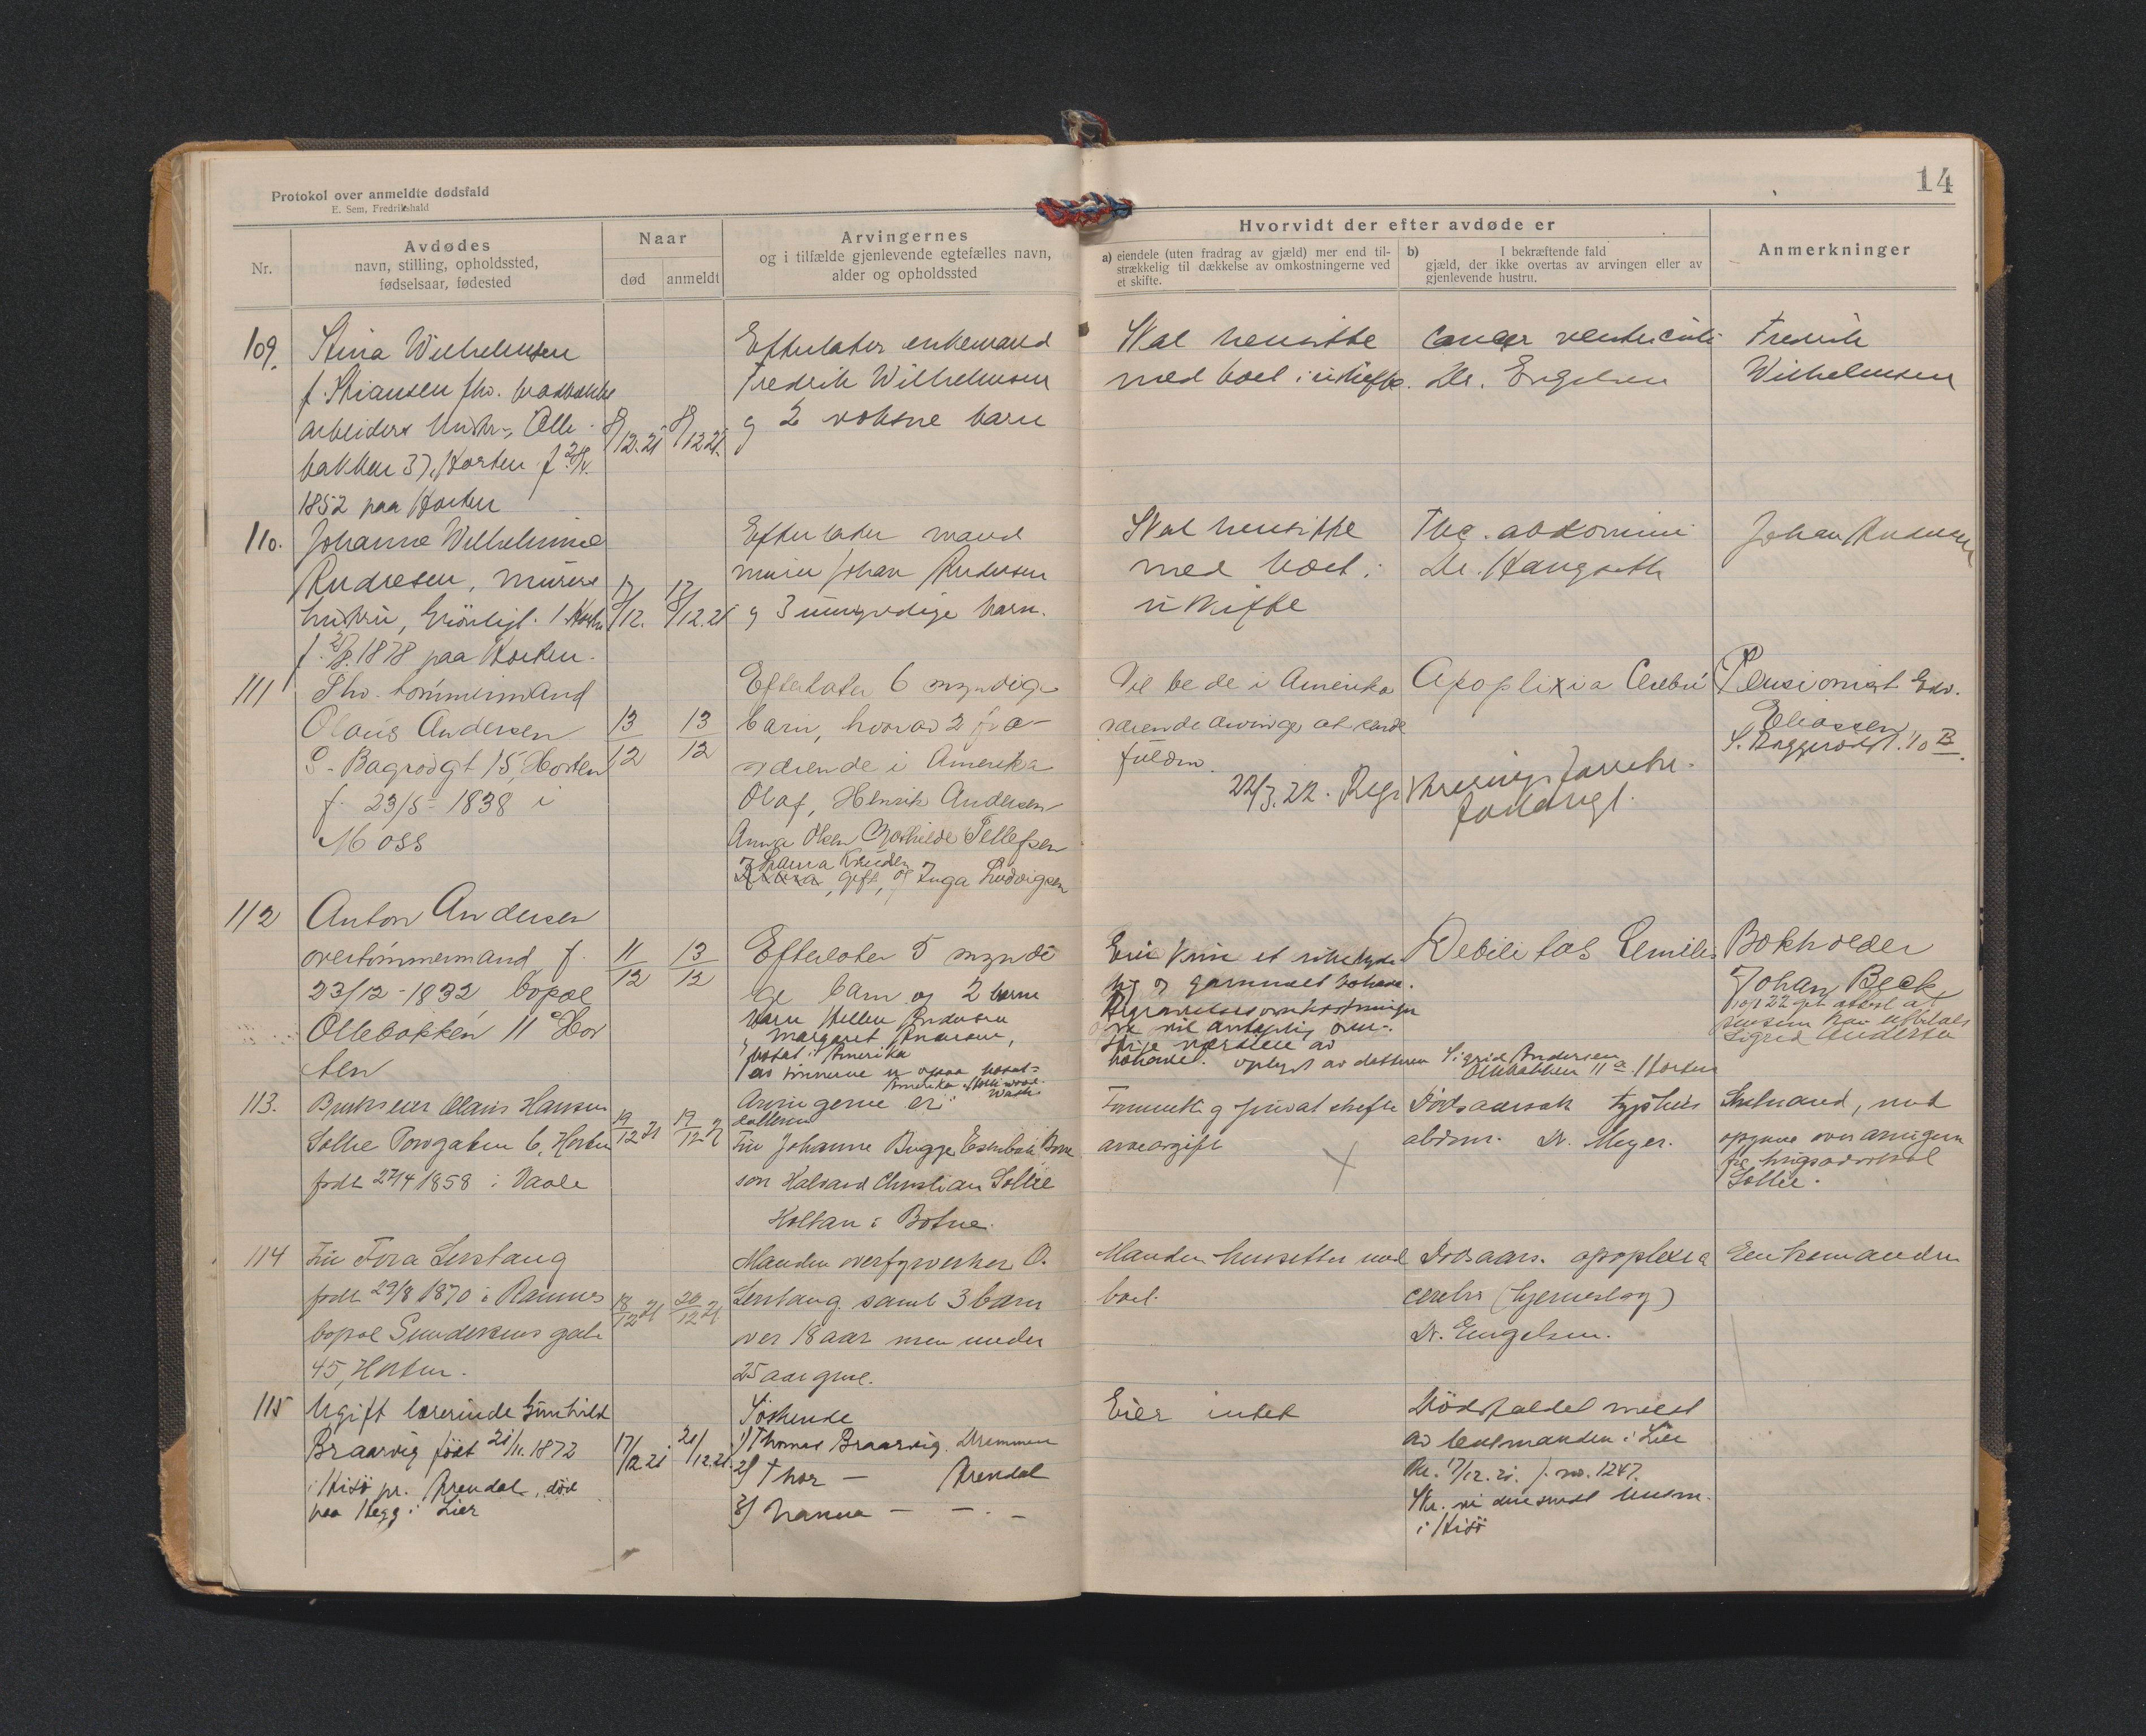 Protokol over anmeldte dødsfald
E. Sem, Fredrikshald
14
Nr.
Avdødes
navn, stilling, opholdssted,
fødselsaar, fødested
Naar
død
anmeldt
Arvingernes
og i tilfælde gjenlevende egtefælles navn,
alder og opholdssted
Hvorvidt der efter avdøde er
a) eiendele (uten fradrag av gjæld) mer end til-
strækkelig til dækkelse av omkostningerne ved
et skifte.
b) I bekræftende fald
gjæld, der ikke overtas av arvingen eller av
gjenlevende hustru.
Anmerkninger
109.
Stina Wilhelmsen
arbeiders hustru, Olle-
bakken 37, Horten f.
1852 paa Horten
12.21
12.21
Efterlater enkemand
Fredrik Wilhelmsen
og 2 voksne barn
Skal hensitte
med boet i uskifte.
Cancer ventriculi
Dr. Engelsen
Fredrik
Wilhelmsen
110.
Johanne Wilhelmine
Andresen, murers
hustru,
1878 paa Horten.
17/12.
12.21
Efterlater mand
murer Johan Andersen
og 3 umyndige barn.
Skal hensitte
med boet i
uskifte
Tbc. abdomini
Dr. Haugseth
Johan Andersen
111
Fhv. tømmermand
Olaus Andersen
15, Horten
f. 23/5-1838 i
Moss
13
12
13
12
Efterlater 6 myndige
barn, hvorav 2 fra-
værende i Amerika
Olaf, Henrik Andersen
Anna Olsen Mathilde Tellefsen
gift, og Inga Ludvigsen
Vil be de i Amerika
værende arvinger at sende
fuldm.
22/3.22.
Apoplixia Cerebri
Pensionist Edv.
Eliassen
10 B.
112
Anton Andersen
overtømmermand f.
23/12-1832 bopæl
Ollebakken 11 Hor
ten
11
12
13
12
Efterlater 5 myndi
ge barn og 2 barne
barn Hellen Andersen
Margaret Andersen,
bosat i Amerika
gammelt indbo.
Begravelsesomkostninger
ne vil antagelig over-
stige værdien av
indboet. oplyst av datteren Sigrid Andersen
Ollebakken 11 a Horten
Debilitas Senilis
Bokholder
Johan Beck
Sigrid Andersen
113.
Brukseier Olaus Hansen
Sollie Torvgaten 6, Horten
født 27/4 1858 i Vaale
19/12 21
19/12 21
Arvingerne er:
datteren
Fru Johanne Bugge
søn Halvard Christian Sollie
Holtan i Botne.
Formentlig privat skifte
arveavgift
Dødsaarsak typhus
abdom. Dr. Meyer.
Skilmand, med
opgave over arvingerne
fra
Sollie.
114
Fru Tora Lerstang
født 29/8 1870 i Ramnes
bopæl gate
45, Horten.
18/12 21
20/12 21
Manden overfyrverker O.
Lerstang samt 3 barn
over 18 aar men under
25 aar gml.
Manden hensitter med
boet.
Dødsaars. apoplexia
cerebri (hjerneslag)
Dr. Engelsen.
Enkemanden
115
Ugift lærerinde Gunhild
Braarvig født 21/11.1872
i Hisø pr. Arendal, død
paa Hegg i Lier
17/12.21
21/12.21
Søskende
1) Thomas Braarvig. Drammen
2) Thor — Arendal
3) Nanna — — . —
Eier intet
Dødsfaldet meldt
av lensmanden i Lier
17/12.21. j. no. 1247.
i Hisø